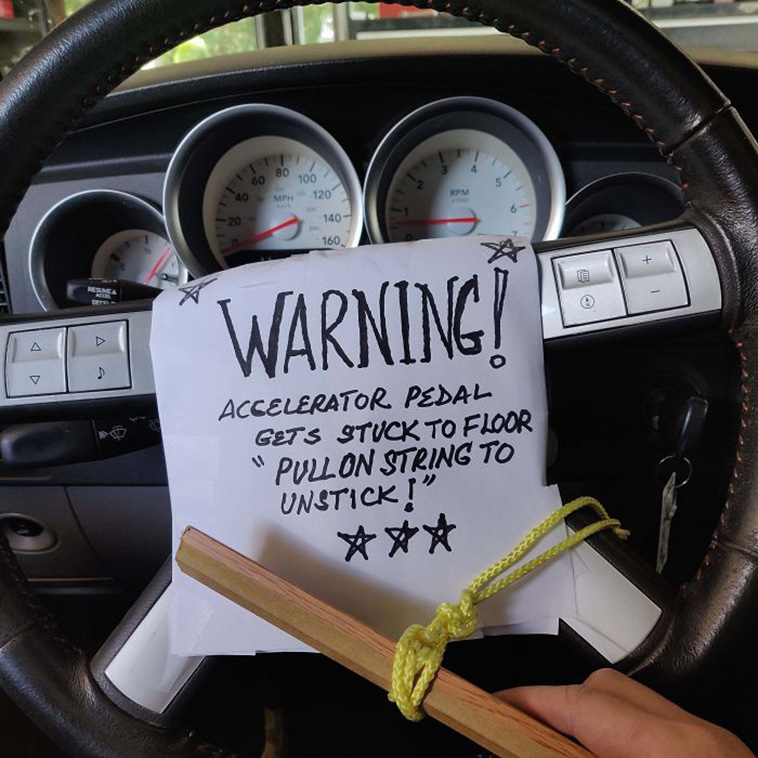 60 80 100
40 120
20 MPH 140
0 160
3 4
2 5
1 RPM 6
7
RESUME
ACCEL
WARNING!
ACCELERATOR PEDAL
GETS STUCK TO FLOOR
"PULL ON STRING TO
UNSTICK!"